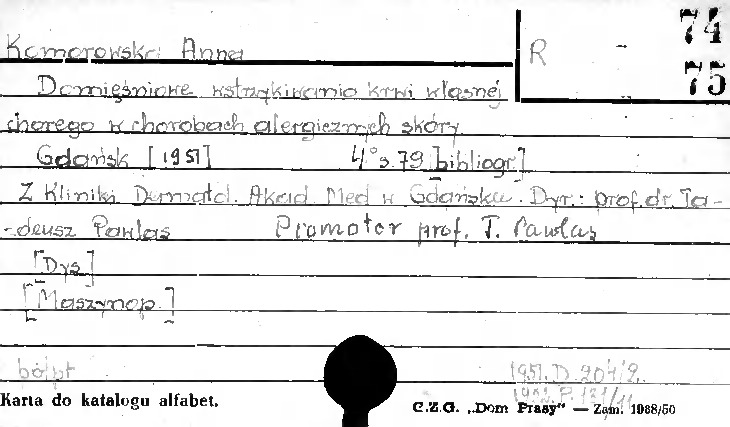 Komorowska Anna
R - 74
75
Domięśniowe wstrzykiwania krwi własnej
chorego w chorobach alergicznych skóry
Gdańsk [1951] 4° s. 79 [bibliogr.]
Z Kliniki Dermatol. Akad. Med w Gdańsku. Dyr.: prof. dr. Ta-
-deusz Pawlas Promotor prof. T. Pawlas
[Dys.]
[Maszynop.]
1951. D. 204/2.
1952. P. 131/11
Karta do katalogu alfabet.
C.Z.G. „Dom Prasy" — Zam. 1968/50